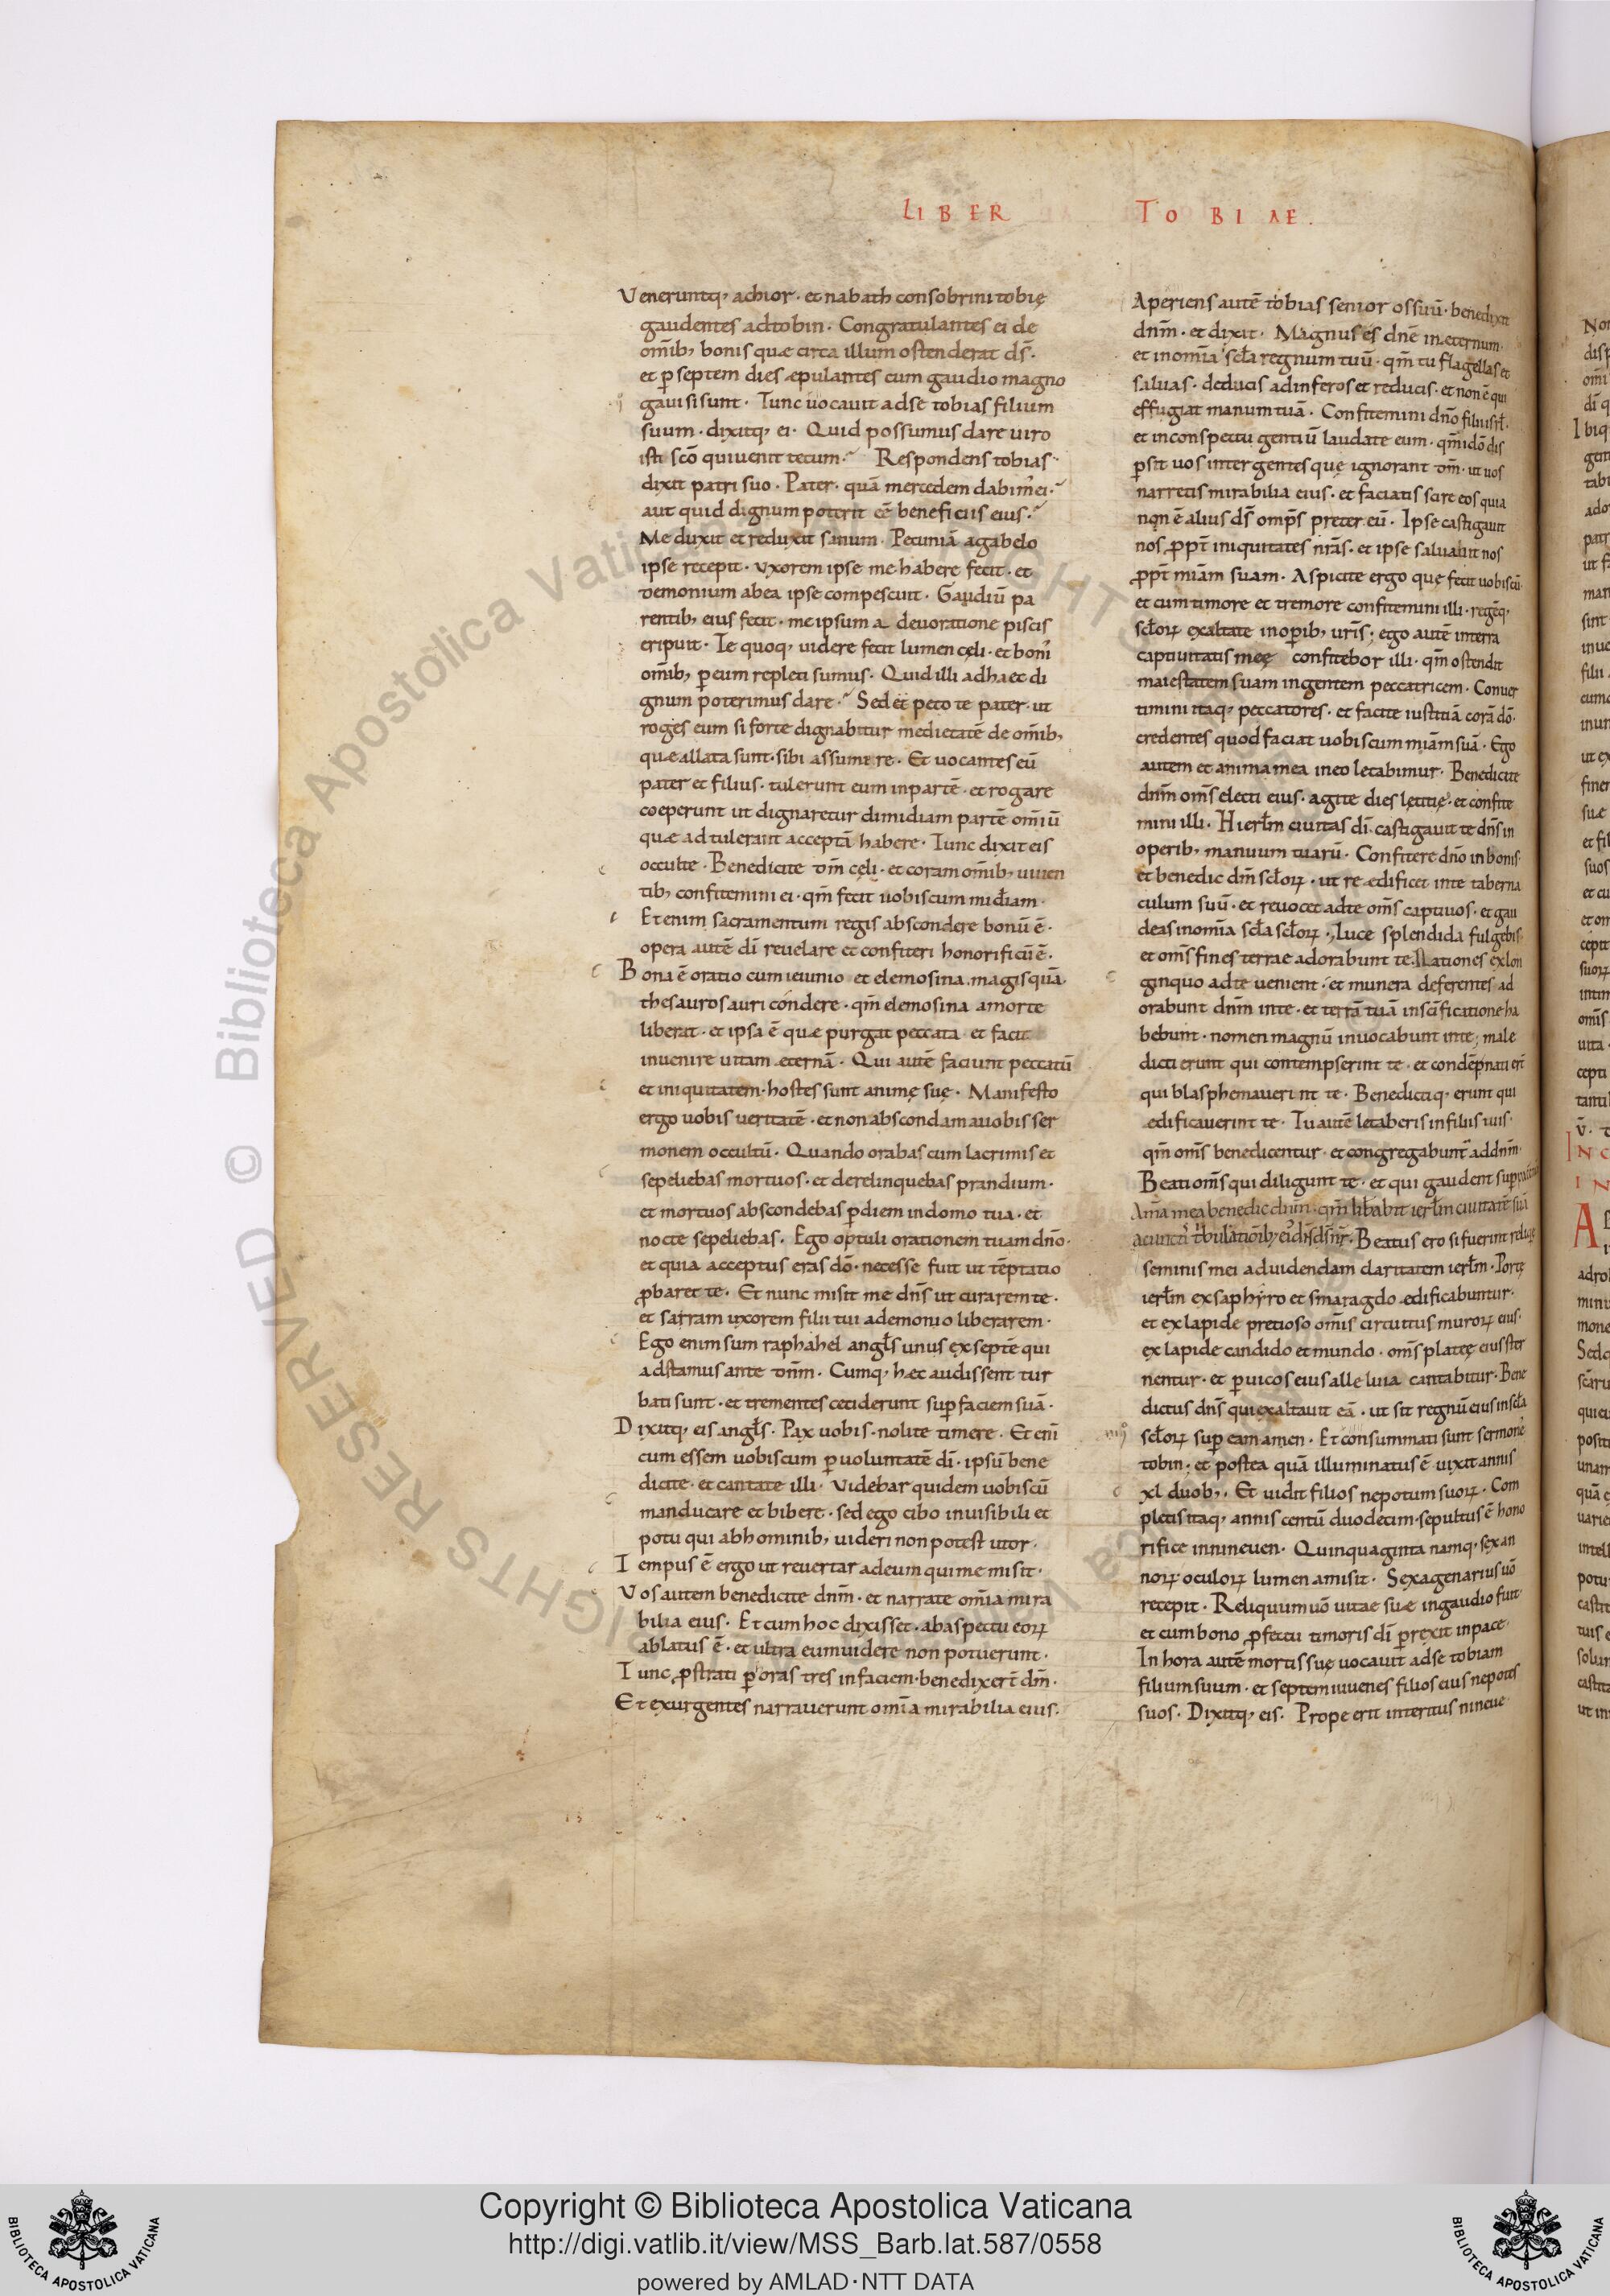 LIBER TOBIAE.
Veneruntq; achior · et nabath consobrini tobię
gaudentes ad tobin · Congratulantes ei de
om̄ib; bonis quæ circa illum ostenderat d̄s ·
et p̱ septem dies æpulantes cum gaudio magno
gauisi sunt · Tunc uocauit ad se tobias filium
suum · dixitq; ei · Quid possumus dare uiro
isti sc̄o qui uenit tecum · Respondens tobias
dixit patri suo · Pater · quā mercedem dabim' ei ·
aut quid dignum poterit ēē beneficiis eius ·
Me duxit et reduxit sanum · Pecuniā a gabelo
ipse recepit · Vxorem ipse me habere fecit · et
demonium ab ea ipse compescuit · Gaudiū pa
rentib; eius fecit · me ipsum a deuoratione piscis
eripuit · Te quoq; uidere fecit lumen cęli · et bonis
om̄ib; p̱ eum repleti sumus · Quid illi ad haec di
gnum poterimus dare · Sed et peto te pater · ut
roges eum si forte dignabitur medietatē de om̄ib;
quæ allata sunt · sibi assumere · Et uocantes eū
pater et filius · tulerunt eum in partē · et rogare
coeperunt ut dignaretur dimidiam partē om̄iū
quæ adtulerant acceptā habere · Tunc dixit eis
occulte · Benedicite dm̄ cęli · et coram om̄ib; uiuen
tib; confitemini ei · qm̄ fecit uobiscum mīdiam ·
Etenim sacramentum regis abscondere bonū ē ·
opera autē dī reuelare et confiteri honorificū ē ·
Bona ē oratio cum ieiunio et elemosina · magis quā
thesauros auri condere · qm̄ elemosina a morte
liberat · et ipsa ē quæ purgat peccata et facit
inuenire uitam æternā · Qui autē faciunt peccatū
et iniquitatem · hostes sunt animę suę · Manifesto
ergo uobis ueritatē · et non abscondam a uobis ser
monem occultū · Quando orabas cum lacrimis et
sepeliebas mortuos · et derelinquebas prandium ·
et mortuos abscondebas p̱ diem in domo tua · et
nocte sepeliebas · Ego optuli orationem tuam dn̄o ·
et quia acceptus eras dō · necesse fuit ut tēptatio
p̱baret te · Et nunc misit me dn̄s ut curarem te ·
et sarram uxorem filii tui a demonio liberarem ·
Ego enim sum raphahel angl̄s unus ex septē qui
adstamus ante dn̄m · Cumq; hæc audissent tur
bati sunt · et trementes ceciderunt sup̱ faciem suā ·
Dixitq; eis angl̄s · Pax uobis · nolite timere · Et enī
cum essem uobiscum p̱ uoluntatē dī · ipsū bene
dicite · et cantate illi · Videbar quidem uobiscū
manducare et bibere · sed ego cibo inuisibili et
potu qui ab hominib; uideri non potest utor ·
Tempus ē ergo ut reuertar ad eum qui me misit ·
Vos autem benedicite dn̄m · et narrate om̄ia mira
bilia eius · Et cum hoc dixisset · ab aspectu eoꝝ
ablatus ē · et ultra eum uidere non potuerunt ·
Tunc p̱strati p̱ oras tres in faciem · benedixer̄t dm̄ ·
Et exurgentes narrauerunt om̄ia mirabilia eius ·
Aperiens autē tobias senior os suū · benedixit
dn̄m · et dixit · Magnus es dn̄e in æternum
et in om̄ia scl̄a regnum tuū · qm̄ tu flagellas et
saluas · deducis ad inferos et reducis · et non ē qui
effugiat manum tuā · Confitemini dn̄o filii isrl̄ ·
et in conspectu gentiū laudate eum · qm̄ idō dis
p̱sit uos inter gentes quę ignorant dm̄ · ut uos
narretis mirabilia eius · et faciatis scire eos quia
non ē alius d̄s omp̄s preter eū · Ipse castigauit
nos p̱pt̄ iniquitates nr̄as · et ipse saluauit nos
p̱pt̄ miām suam · Aspicite ergo quę fecit uobiscū ·
et cum timore et tremore confitemini illi · regēq;
scl̄oꝝ exaltate in op̱ib; ur̄is ; ego autē in terra
captiuitatis meę confitebor illi · qm̄ ostendit
maiestatem suam in gentem peccatricem · Conuer
timini itaq; peccatores · et facite iustitiā corā dō ·
credentes quod faciat uobiscum miām suā · Ego
autem et anima mea in eo letabimur · Benedicite
dn̄m om̄s electi eius · agite dies lętitię · et confite
mini illi · Hierl̄m ciuitas dī · castigauit te dn̄s in
operib; manuum tuarū · Confitere dn̄o in bonis ·
et benedic dm̄ scl̄oꝝ · ut reædificet in te taberna
culum suū · et reuocet ad te om̄s captiuos · et gau
deas in om̄ia scl̄a scl̄oꝝ · Luce splendida fulgebis ·
et om̄s fines terrae adorabunt te · Nationes ex lon
ginquo ad te uenient · et munera deferentes ad
orabunt dn̄m in te · et terrā tuā in scīficatione ha
bebunt · nomen magnū inuocabunt in te ; male
dicti erunt qui contempserint te · et condēpnati er̄t
qui blasphemauerint te · Benedictiq; erunt qui
ædificauerint te · Tu autē letaberis in filiis tuis ·
qm̄ om̄s benedicentur · et congregabunt' ad dn̄m ·
Beati om̄s qui diligunt te · et qui gaudent sup̱ pace tua
Anīa mea benedic dn̄m · qm̄ lib̄abit ierl̄m ciuitatē suā
a cunctis t'bulationib; ei' dn̄s d̄s nr̄ · Beatus ero si fuerint reliquię
seminis mei ad uidendam claritatem ierl̄m · Portę
ierl̄m ex saphyro et smaragdo ædificabuntur ·
et ex lapide pretioso om̄is circuitus muroꝝ eius ·
ex lapide candido et mundo · om̄s plateę eius ster
nentur · et p̱ uicos eius alleluia cantabitur · Bene
dictus dn̄s qui exaltauit eā · ut sit regnū eius in scl̄a
scl̄oꝝ sup̱ eam amen · Et consummati sunt sermones
tobin ; et postea quā illuminatus ē uixit annis
xl duob; · Et uidit filios nepotum suoꝝ · Com
pletis itaq; annis centū duodecim · sepultus ē hono
rifice in nineuen · Quinquaginta namq; sex an
noꝝ oculoꝝ lumen amisit · Sexagenarius uō
recepit · Reliquum uō uitae suæ in gaudio fuit ·
et cum bono p̱fectu timoris dī p̱rexit in pace ·
In hora autē mortis suę uocauit ad se tobiam
filium suum · et septem iuuenes filios eius nepotes
suos · Dixitq; eis · Prope erit interitus nineue ·
Copyright © Biblioteca Apostolica Vaticana
http://digi.vatlib.it/view/MSS_Barb.lat.587/0558
powered by AMLAD · NTT DATA
BIBLIOTECA APOSTOLICA VATICANA
BIBLIOTECA APOSTOLICA VATICANA